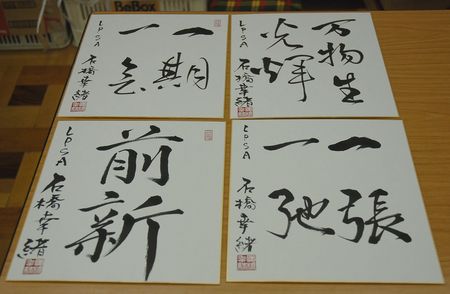 BeBox
一期
一会
LPSA 石橋幸緒
万物生
光輝
LPSA 石橋幸緒
前新
LPSA 石橋幸緒
一張
一弛
LPSA 石橋幸緒